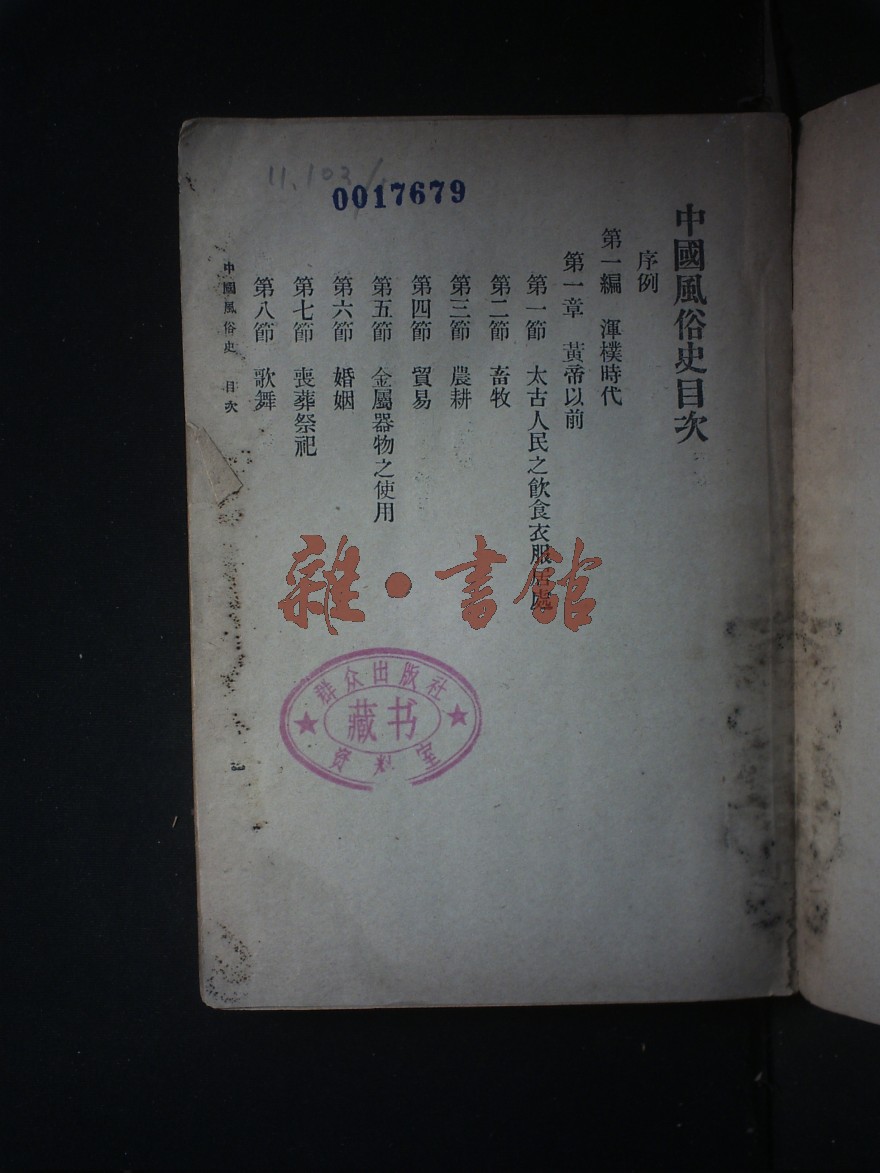 11.103
0017679
中國風俗史目次
序例
第一編　渾樸時代
第一章　黃帝以前
第一節　太古人民之飲食衣服居處
第二節　畜牧
第三節　農耕
第四節　貿易
第五節　金屬器物之使用
第六節　婚姻
第七節　喪葬祭祀
第八節　歌舞
中國風俗史　目次
雜·書館
群众出版社
藏书
资料室